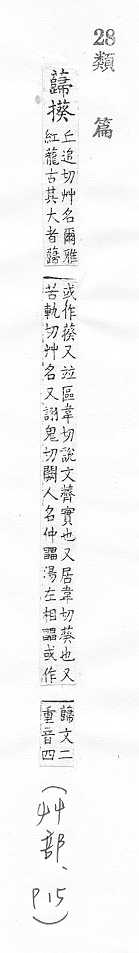 28
類篇
蘬
丘追切艸名爾雅
紅龍古其大者蘬
或作葵又竝區韋切說文薺實也又居韋切葵也又
苦軌切艸名又詡鬼切闕人名仲湯左相或作
蘬文二
重音四
(艸部、P15)